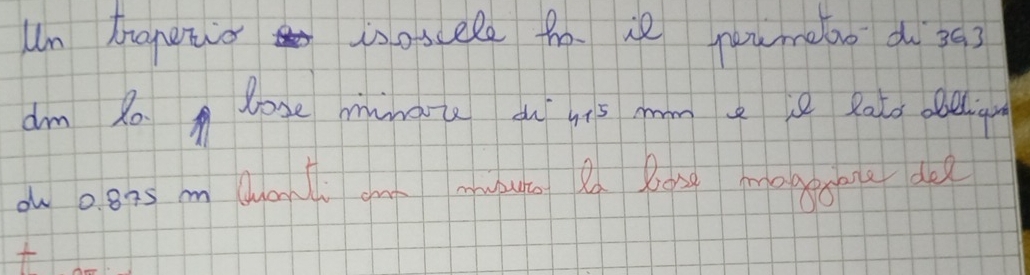 Un trapezio isoscele ha il perimetro di 363
dm la base minore di 415 mm e il lato obliquo
di 0.875 m Quanti cm misura la base maggiore del
t